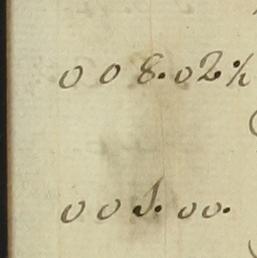 0 0 8. 02½
0 0 1. 00.